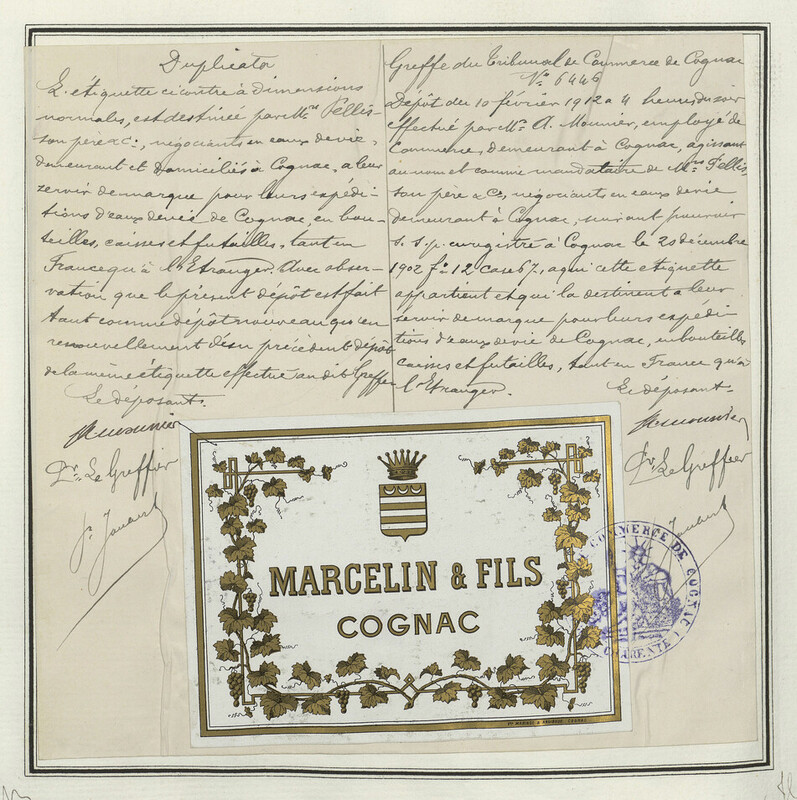 Duplicata
L'étiquette ci contre à dimensions
normales, est destinée par Mrs Pellis-
son père & Cie, négociants en eaux de vie,
demeurant et domiciliés à Cognac, a leur
servir de marque pour leurs expédi-
tions d'eaux de vie de Cognac, en bou-
teilles, caisses et futailles, tant en
France qu'à l'Etranger. Avec obser-
vation que le présent dépôt est fait
tant comme dépôt nouveau qu'en
renouvellement d'un précédent dépôt
de la même étiquette effectué au dit Greffe
Le déposant.
A. Mounier
Pr. Le Greffier
Greffe du Tribunal de Commerce de Cognac
No 6446
Dépôt du 10 février 1912 a 4 heures du soir
effectué par Mr A. Mounier, employé de
Commerce, demeurant à Cognac, agissant
au nom et comme mandataire de Mrs Pellis-
son père & Co, négociants en eaux de vie
demeurant à Cognac, suivant pouvoir
s. s. p. enregistré à Cognac le 20 décembre
1902 fo 12 case 67, a qui cette etiquette
appartient et qui la destinent a leur
servir de marque pour leurs expédi-
tions d'eaux de vie de Cognac, en bouteilles
caisses et futailles, tant en France qu'à
l'Etranger.
Le déposant.
A. Mounier
Pr. Le Greffier
MARCELIN & FILS
COGNAC
COMMERCE DE COGNAC
CHARENTE